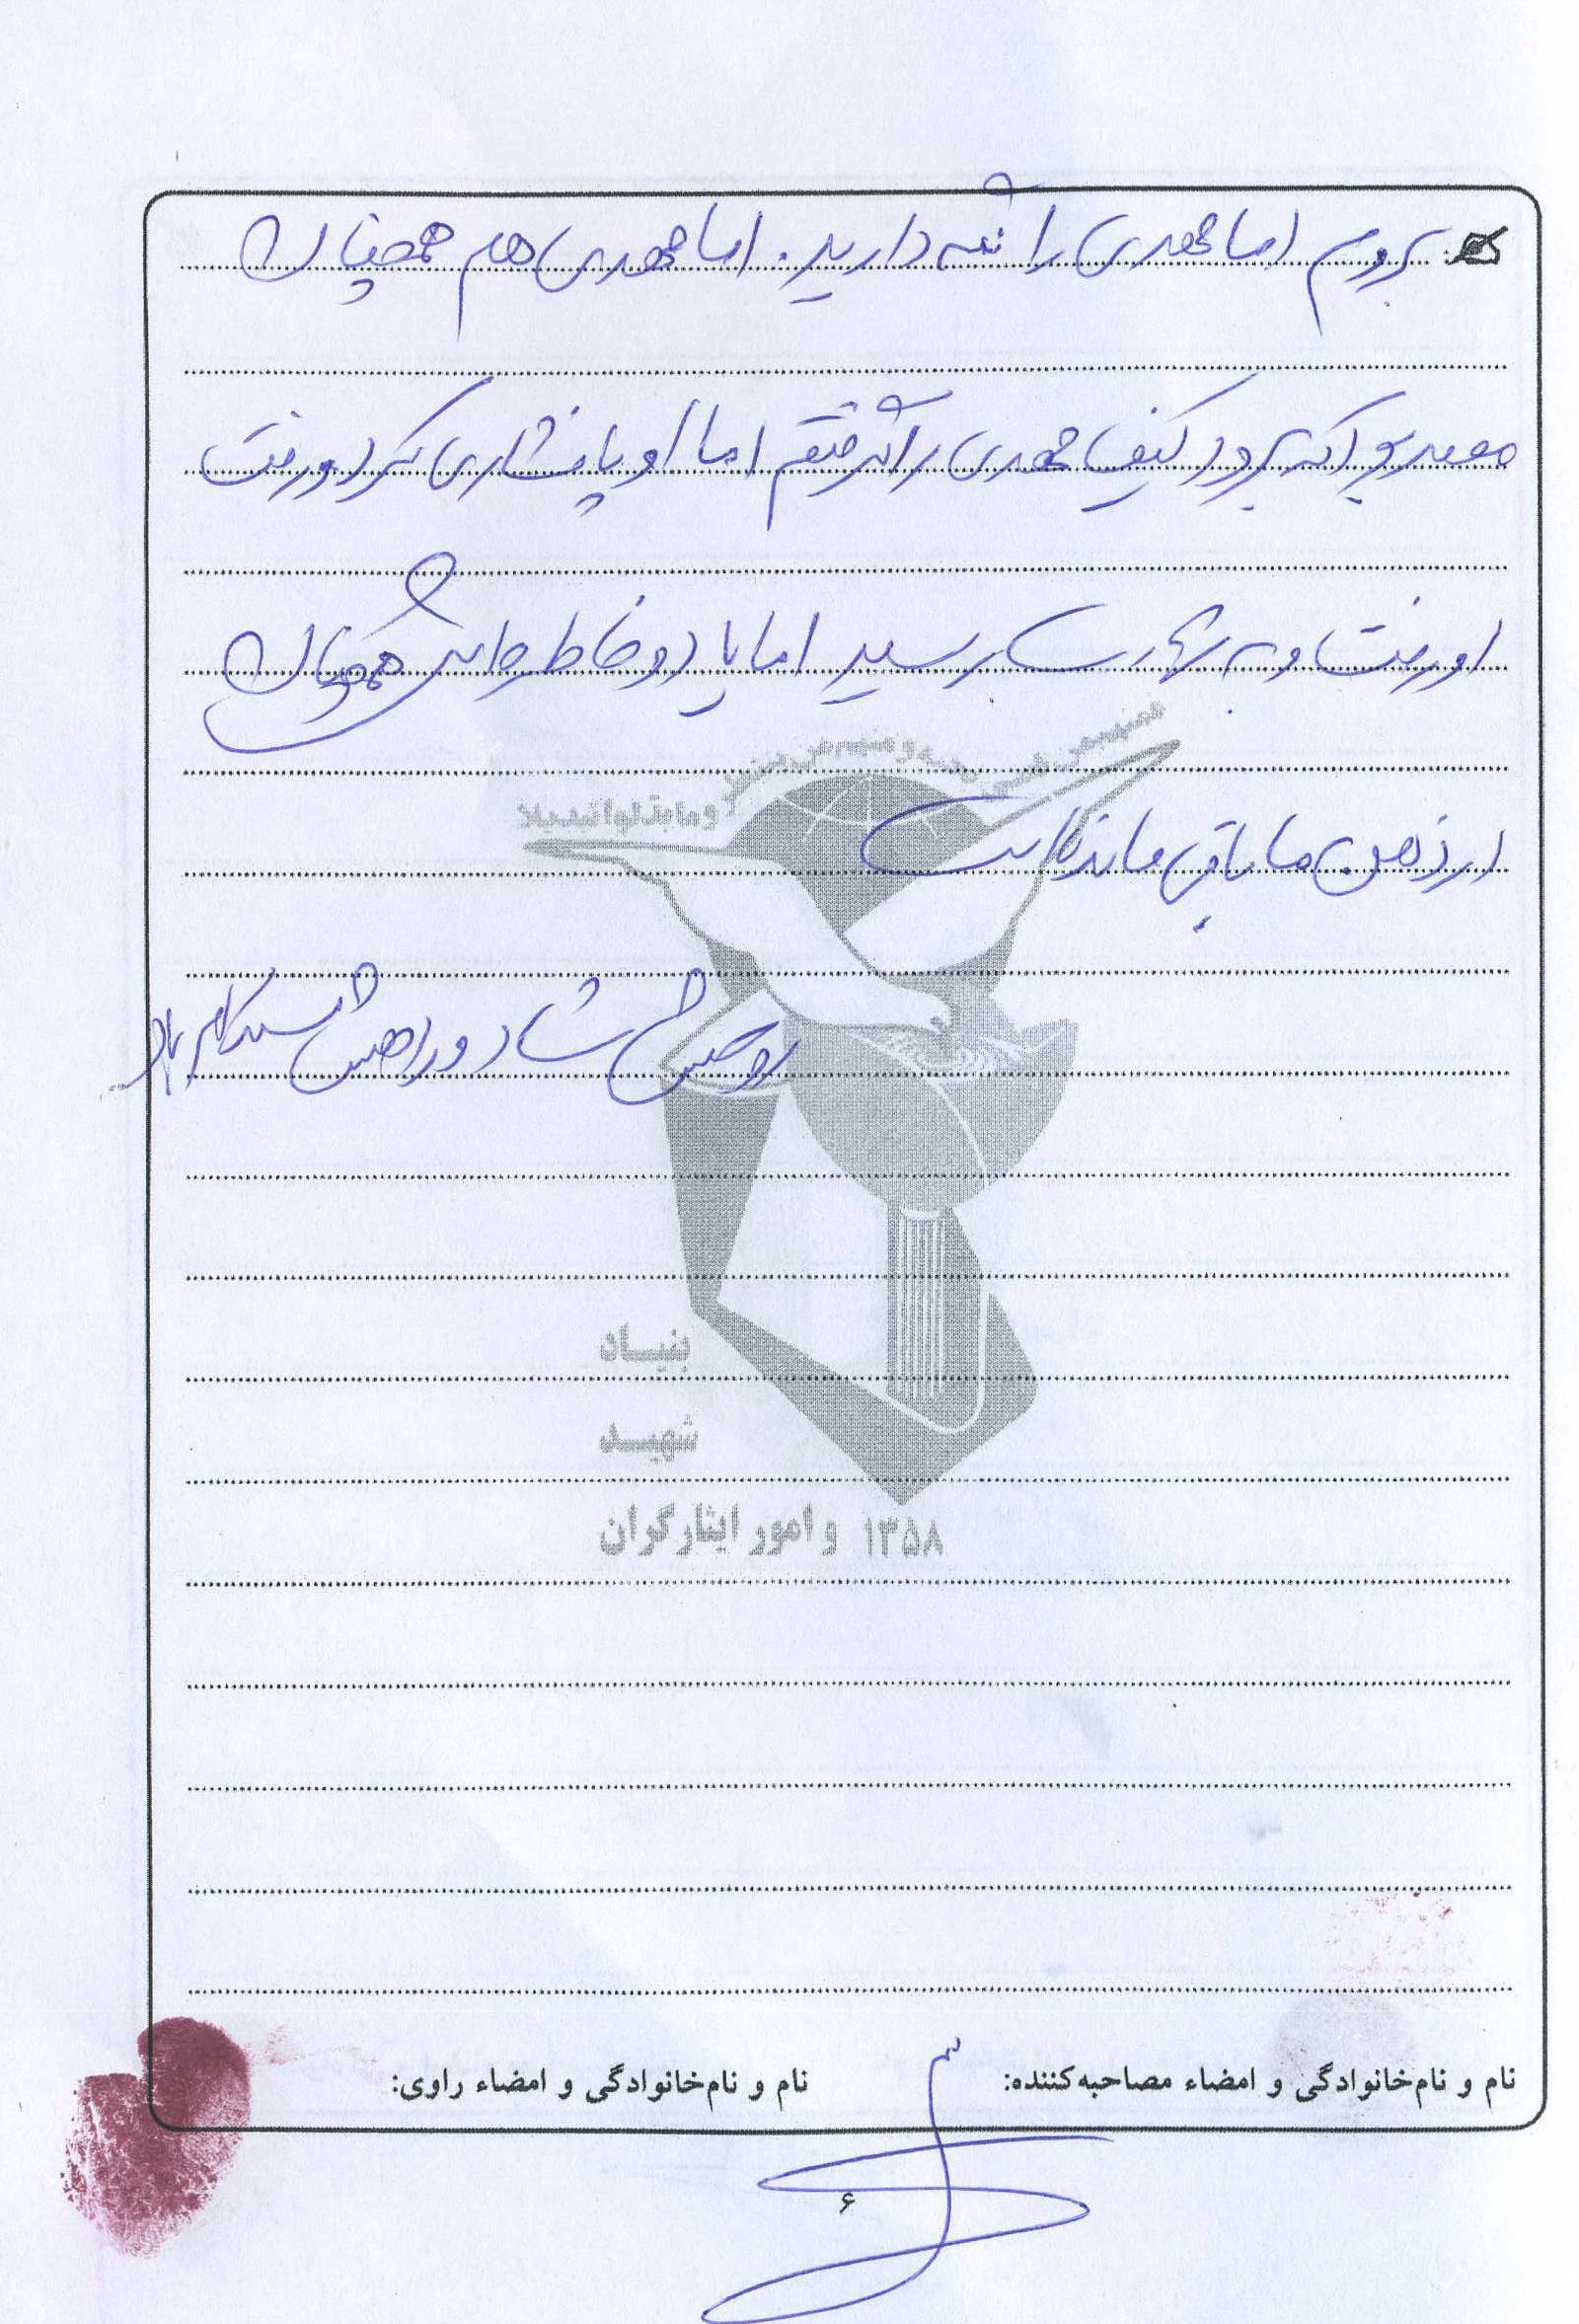 بروم اما مهدی را نگه دارید. اما مهدی هم همچنان
مصر بود که برود کیف مهدی را گرفتم اما او پافشاری کرد و رفت
او رفت و به شهادت رسید اما یاد و خاطره‌اش همچنان
در ذهن ما باقی مانده است
روحش شاد و راهش مستدام باد
بنیاد
شهید
و امور ایثارگران ۱۳۵۸
نام و نام‌خانوادگی و امضاء مصاحبه‌کننده: نام و نام‌خانوادگی و امضاء راوی:
۶